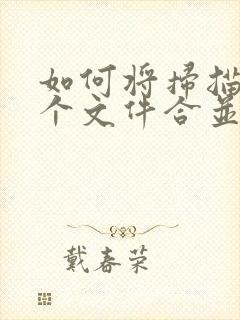 如何将扫描
个文件合並
戴春荣